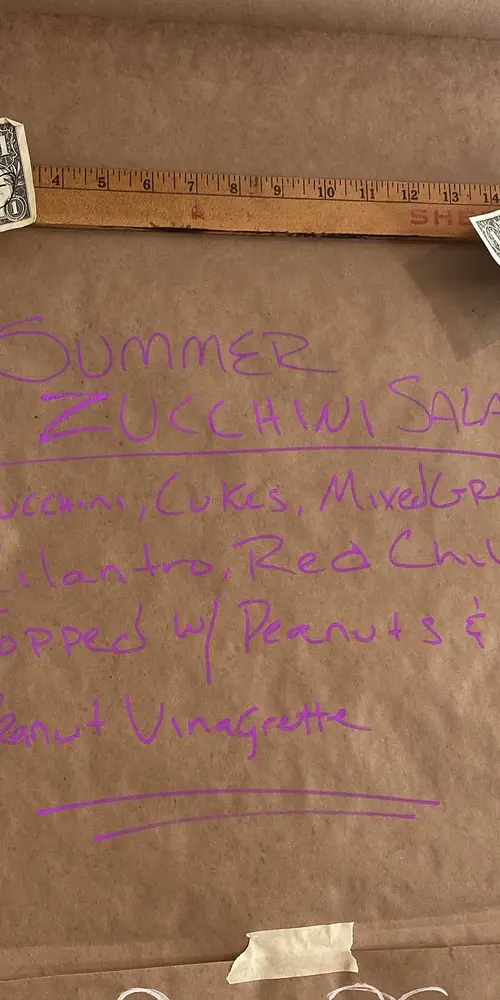 4 5 6 7 8 9 10 11 12 13 14
SHE
SUMMER
ZUCCHINI SALA
ucchini, Cukes, Mixed Gr
ilantro, Red Chil
opped w/ Peanuts &
eanut Vinagrette